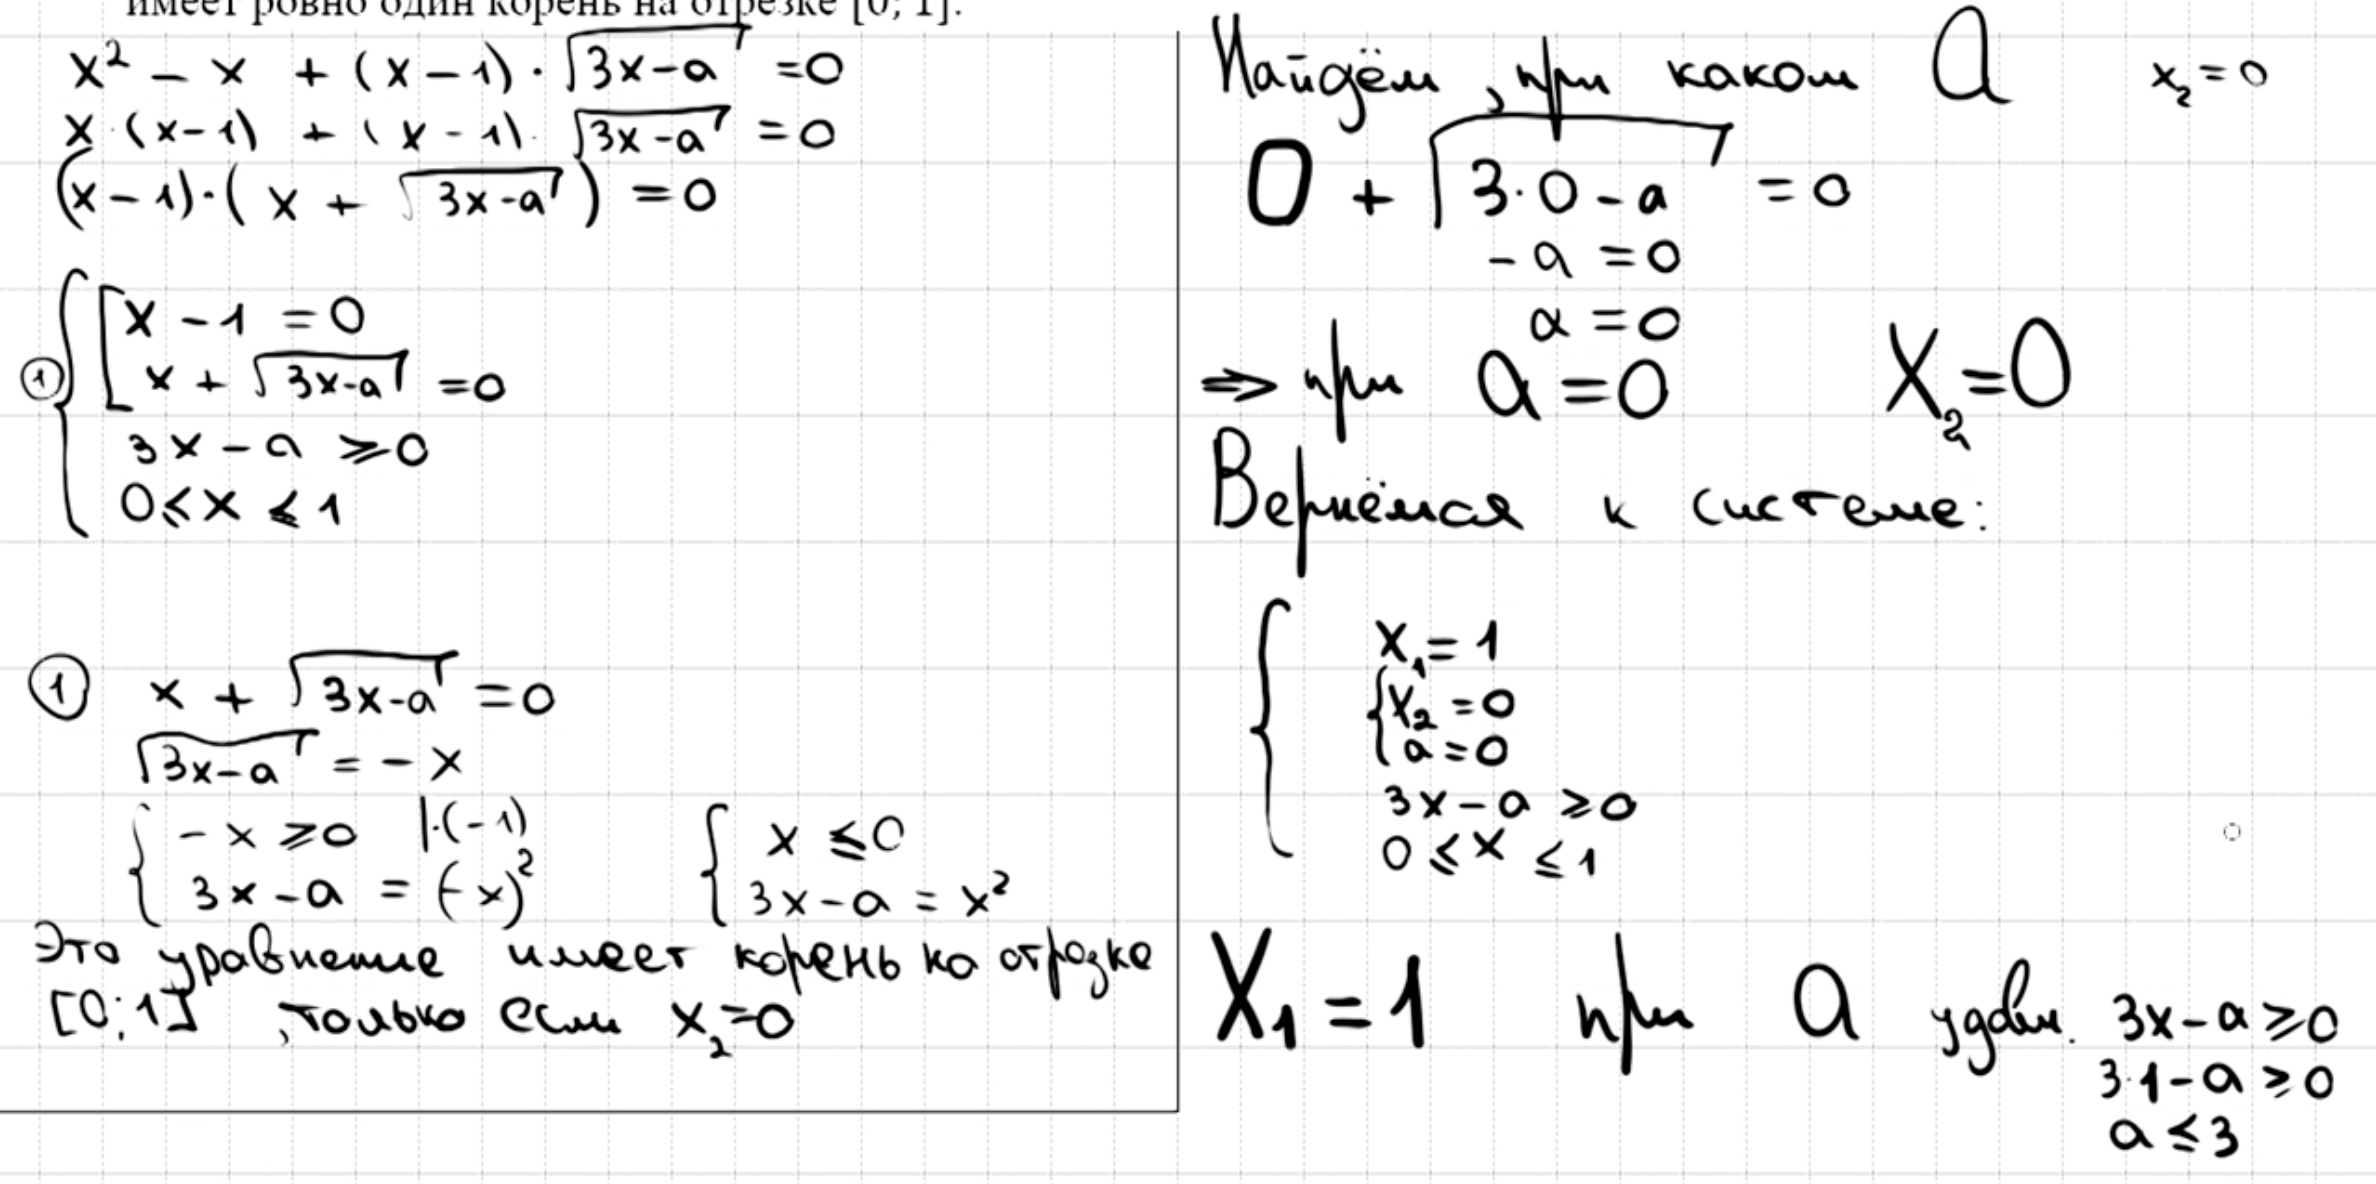 имеет ровно один корень на отрезке [0; 1].
x² − x + (x − 1) · √(3x−a) = 0
x · (x−1) + (x − 1) · √(3x−a) = 0
(x − 1) · (x + √(3x−a)) = 0
① { [ x − 1 = 0
x + √(3x−a) = 0
3x − a ⩾ 0
0 ⩽ x ⩽ 1
① x + √(3x−a) = 0
√(3x−a) = − x
{ − x ⩾ 0 |·(−1) { x ⩽ 0
3x − a = (−x)² 3x − a = x²
Это уравнение имеет корень на отрезке
[0; 1] , только если x₂=0
Найдём , при каком a x₂ = 0
0 + √(3·0 − a) = 0
− a = 0
a = 0
⇒ при a = 0 x₂ = 0
Вернёмся к системе:
{ x₁ = 1
{ x₂ = 0
a = 0
3x − a ⩾ 0
0 ⩽ x ⩽ 1
x₁ = 1 при a удовл. 3x − a ⩾ 0
3·1 − a ⩾ 0
a ⩽ 3